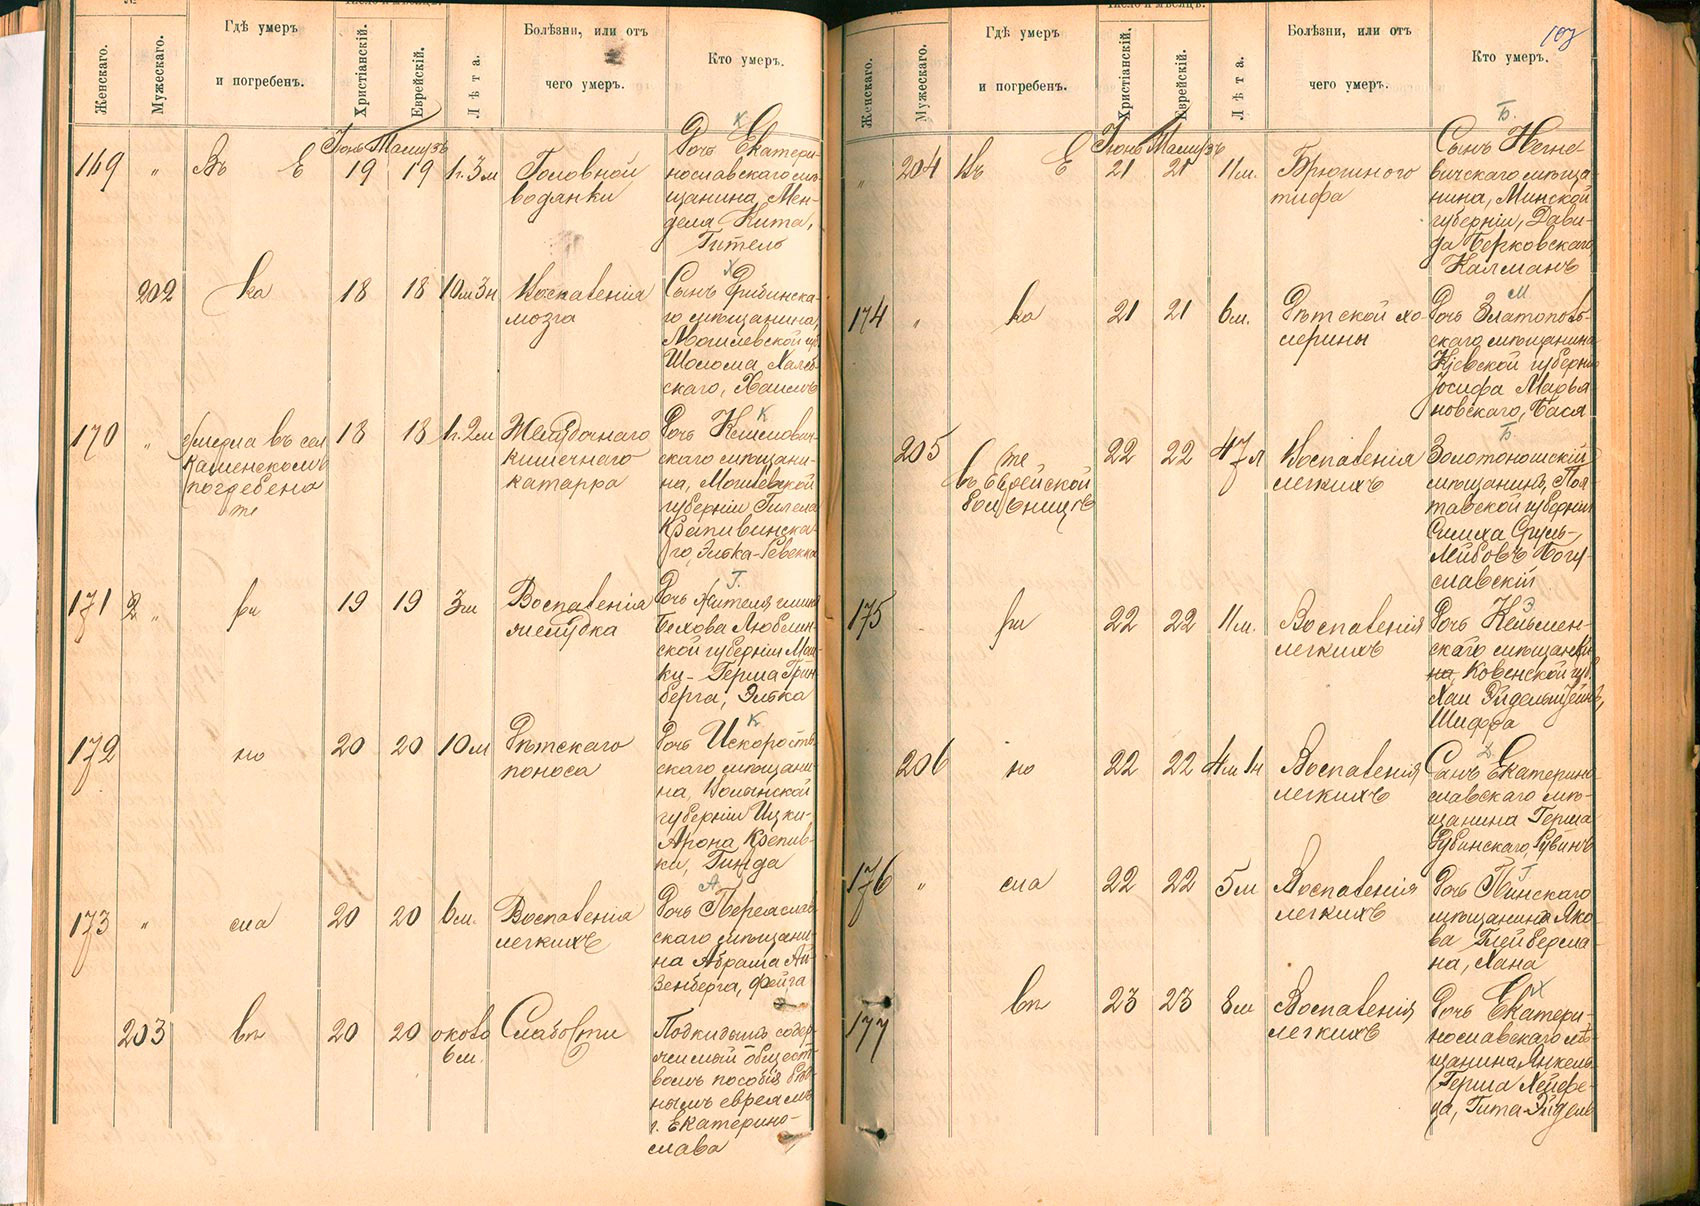 Женскаго.
Мужескаго.
Гдѣ умеръ
и погребенъ.
Христіанскій.
Еврейскій.
Лѣта.
Болѣзни, или отъ
чего умеръ.
Кто умеръ.
Іюнь Тамузъ
169 " Въ Е 19 19 1г. 3м
Головной
водянки
К
Дочь Екатери-
нославскаго мѣ-
щанина Мен-
деля Кита,
Гитель
202 ка 18 18 10м 3н
Воспаленія
мозга
Х
Сынъ
го мѣщанина,
Могилевской гу
Шолома
скаго, Хаимъ
170 " умерла въ сел
Каменскомъ
погребена
те
18 18 1г. 2м
Желудочнаго
кишечнаго
катарра
К
Дочь
скаго мѣщани-
на, Могилевской
губерніи Гилела
Крапивинска-
го, Элька-Ревекка
171 " ри 19 19 3м
Воспаленія
желудка
Г.
Дочь жителя гмина
Бехова Люблин-
ской губерніи
ки-Герша Грин
берга, Элька
172 но 20 20 10м
Дѣтскаго
поноса
К
Дочь Искорость-
скаго мѣщани-
на, Волынской
губерніи Ицки-
Арона Крепив-
ки, Гинда
173 " сла 20 20 6м.
Воспаленія
легкихъ
А
Дочь Переяслав-
скаго мѣщани-
на Абрама Ай-
зенберга, Фейга
203 вѣ 20 20 около
6м.
Слабости
Подкидышъ содер-
жимый общест-
вомъ пособія бѣд-
нымъ евреямъ
г. Екатерино-
слава
107
Женскаго.
Мужескаго.
Гдѣ умеръ
и погребенъ.
Христіанскій.
Еврейскій.
Лѣта.
Болѣзни, или отъ
чего умеръ.
Кто умеръ.
Іюнь Тамузъ
" 204 Въ Е 21 21 11м.
Брюшного
тифа
Б.
Сынъ Негне
вичскаго мѣща-
нина, Минской
губерніи, Дави-
да Берковскаго,
Калманъ
174 " ка 21 21 6м.
Дѣтской хо-
лерины
М
Дочь Златополь-
скаго мѣщанина
Кіевской губерніи
Іосифа Марья-
новскаго, Бася
205 те
въ Еврейской
больницѣ
22 22 47л
Воспаленія
легкихъ
Б.
Золотоношскій
мѣщанинъ, Пол-
тавской губерніи
Симха Сруль-
Лейбовъ Богу-
славскій
175 ри 22 22 11м.
Воспаленія
легкихъ
Э
Дочь Кельмен-
скаго мѣщани
на Ковенской губ.
Хаи Эйдельштейнъ,
Шифра
206 но 22 22 4м 1н
Воспаленія
легкихъ
Д.
Сынъ Екатерино-
славскаго мѣ-
щанина Герша
Рубинъ
176 " сла 22 22 5м
Воспаленія
легкихъ
Г
Дочь Пинскаго
мѣщанина Яко-
ва Глейберма-
на, Хана
177 вѣ 23 23 8м
Воспаленія
легкихъ
Х
Дочь Екатери-
нославскаго мѣ-
щанина Янкель
Герша Хейфе-
ца, Гита-Эйдель